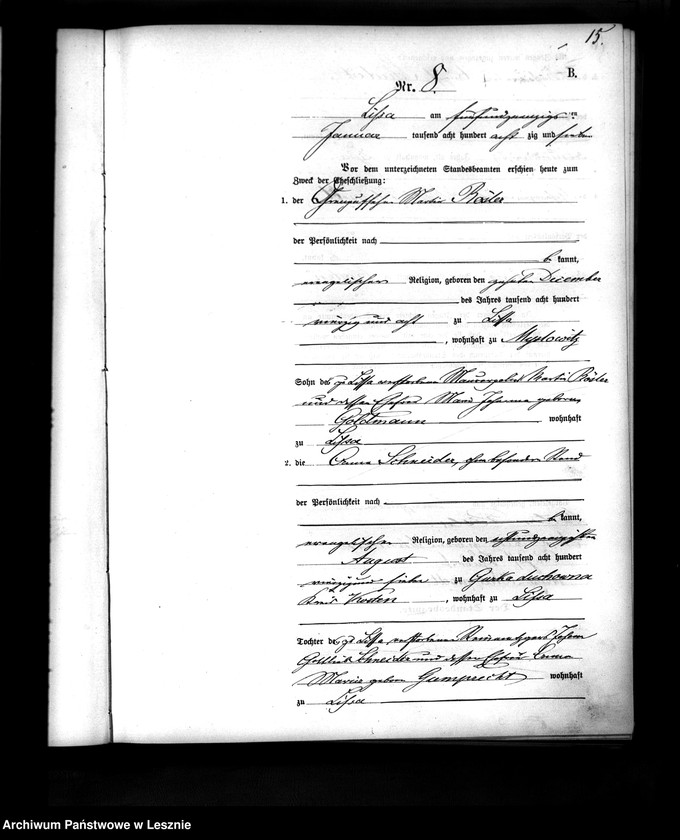 15.
B.
Nr. 8.
Lissa am fünfundzwanzigsten
Januar tausend acht hundert acht zig und sieben
Vor dem unterzeichneten Standesbeamten erschien heute zum
Zweck der Eheschließung:
1. der Martin Rösler
der Persönlichkeit nach
be kannt,
evangelischer Religion, geboren den zehnten December
des Jahres tausend acht hundert
vierzig und acht zu Lissa
, wohnhaft zu Myslowitz
Sohn des zu Lissa verstorbenen Martin Rösler
und dessen Ehefrau Marie Johanna geborene
Goldmann wohnhaft
zu Lissa
2. die Anna Schneider, ohne besonderen Stand
der Persönlichkeit nach
be kannt,
evangelischer Religion, geboren den
August des Jahres tausend acht hundert
vierzig und sieben zu Gurka duchowna
Kreis Kosten , wohnhaft zu Lissa
Tochter des zu Lissa verstorbenen Johann
Gottlieb Schneider und dessen Ehefrau
Marie geborene Gumprecht wohnhaft
zu Lissa
Archiwum Państwowe w Lesznie